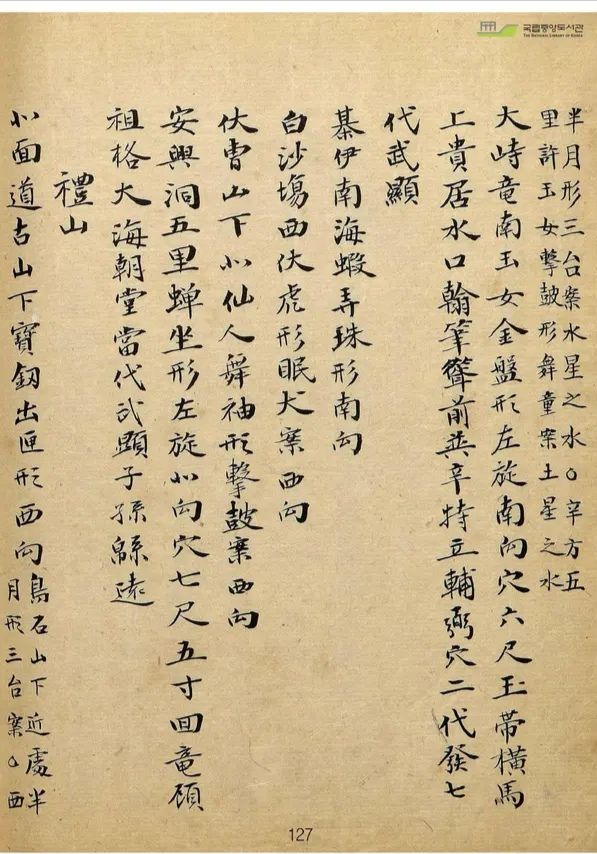 국립중앙도서관
THE NATIONAL LIBRARY OF KOREA
半月形三台案水星之水○辛方五
里許玉女擊鼓形舞童案土星之水
大峙竜南玉女金盤形左旋南向穴六尺玉帶橫馬
上貴居水口翰筆聳前英辛特立輔弼穴二代發七
代武顯
綦伊南海蝦弄珠形南向
白沙場西伏虎形眠犬案西向
伏曺山下北仙人舞袖形擊鼓案西向
安興洞五里蟬坐形左旋北向穴七尺五寸回竜顧
祖格大海朝堂當代武顯子孫綿遠
禮山
北面道古山下寶釼出匣形西向
鳥石山下近處半
月形三台案○西
127